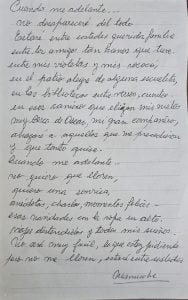 Cuando me adelante...
no desapareceré del todo.
Estaré entre ustedes querida familia
entre los amigos tan buenos que tuve.
entre mis violetas y mis rosas,
en el patio alegre de alguna escuelita,
en las bibliotecas entre versos, cuentos
en esos caminos que elijan mis nietos
muy cerca de Oscar, mi gran compañero,
abrazos a aquellos que me precedieron
y que tanto quise.
Cuando me adelante...
no quiero que lloren,
quiero una sonrisa,
anécdotas, charlas, momentos felices
esas navidades en la ropa en alto.
viajes distendidos y todo mis sueños.
No será muy fácil, lo que estoy pidiendo
pero no me lloren, estaré entre ustedes